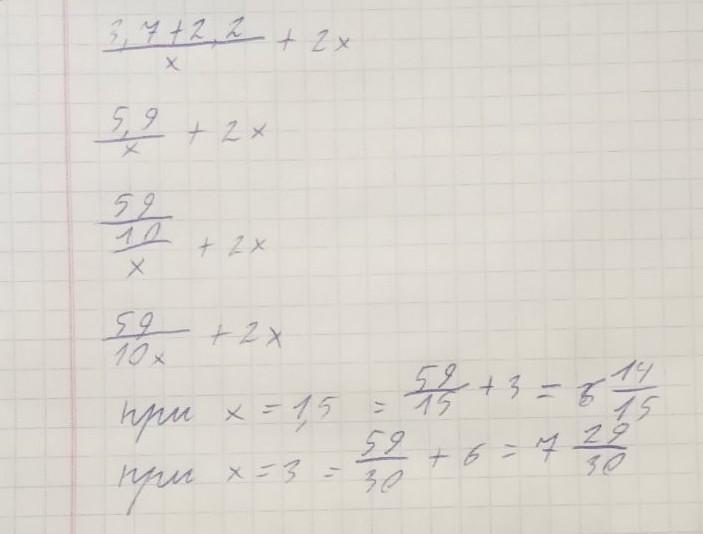 3,7+2,2/x + 2x
5,9/x + 2x
59/10/x + 2x
59/10x + 2x
при x = 1,5 = 59/15 + 3 = 6 14/15
при x = 3 = 59/30 + 6 = 7 29/30